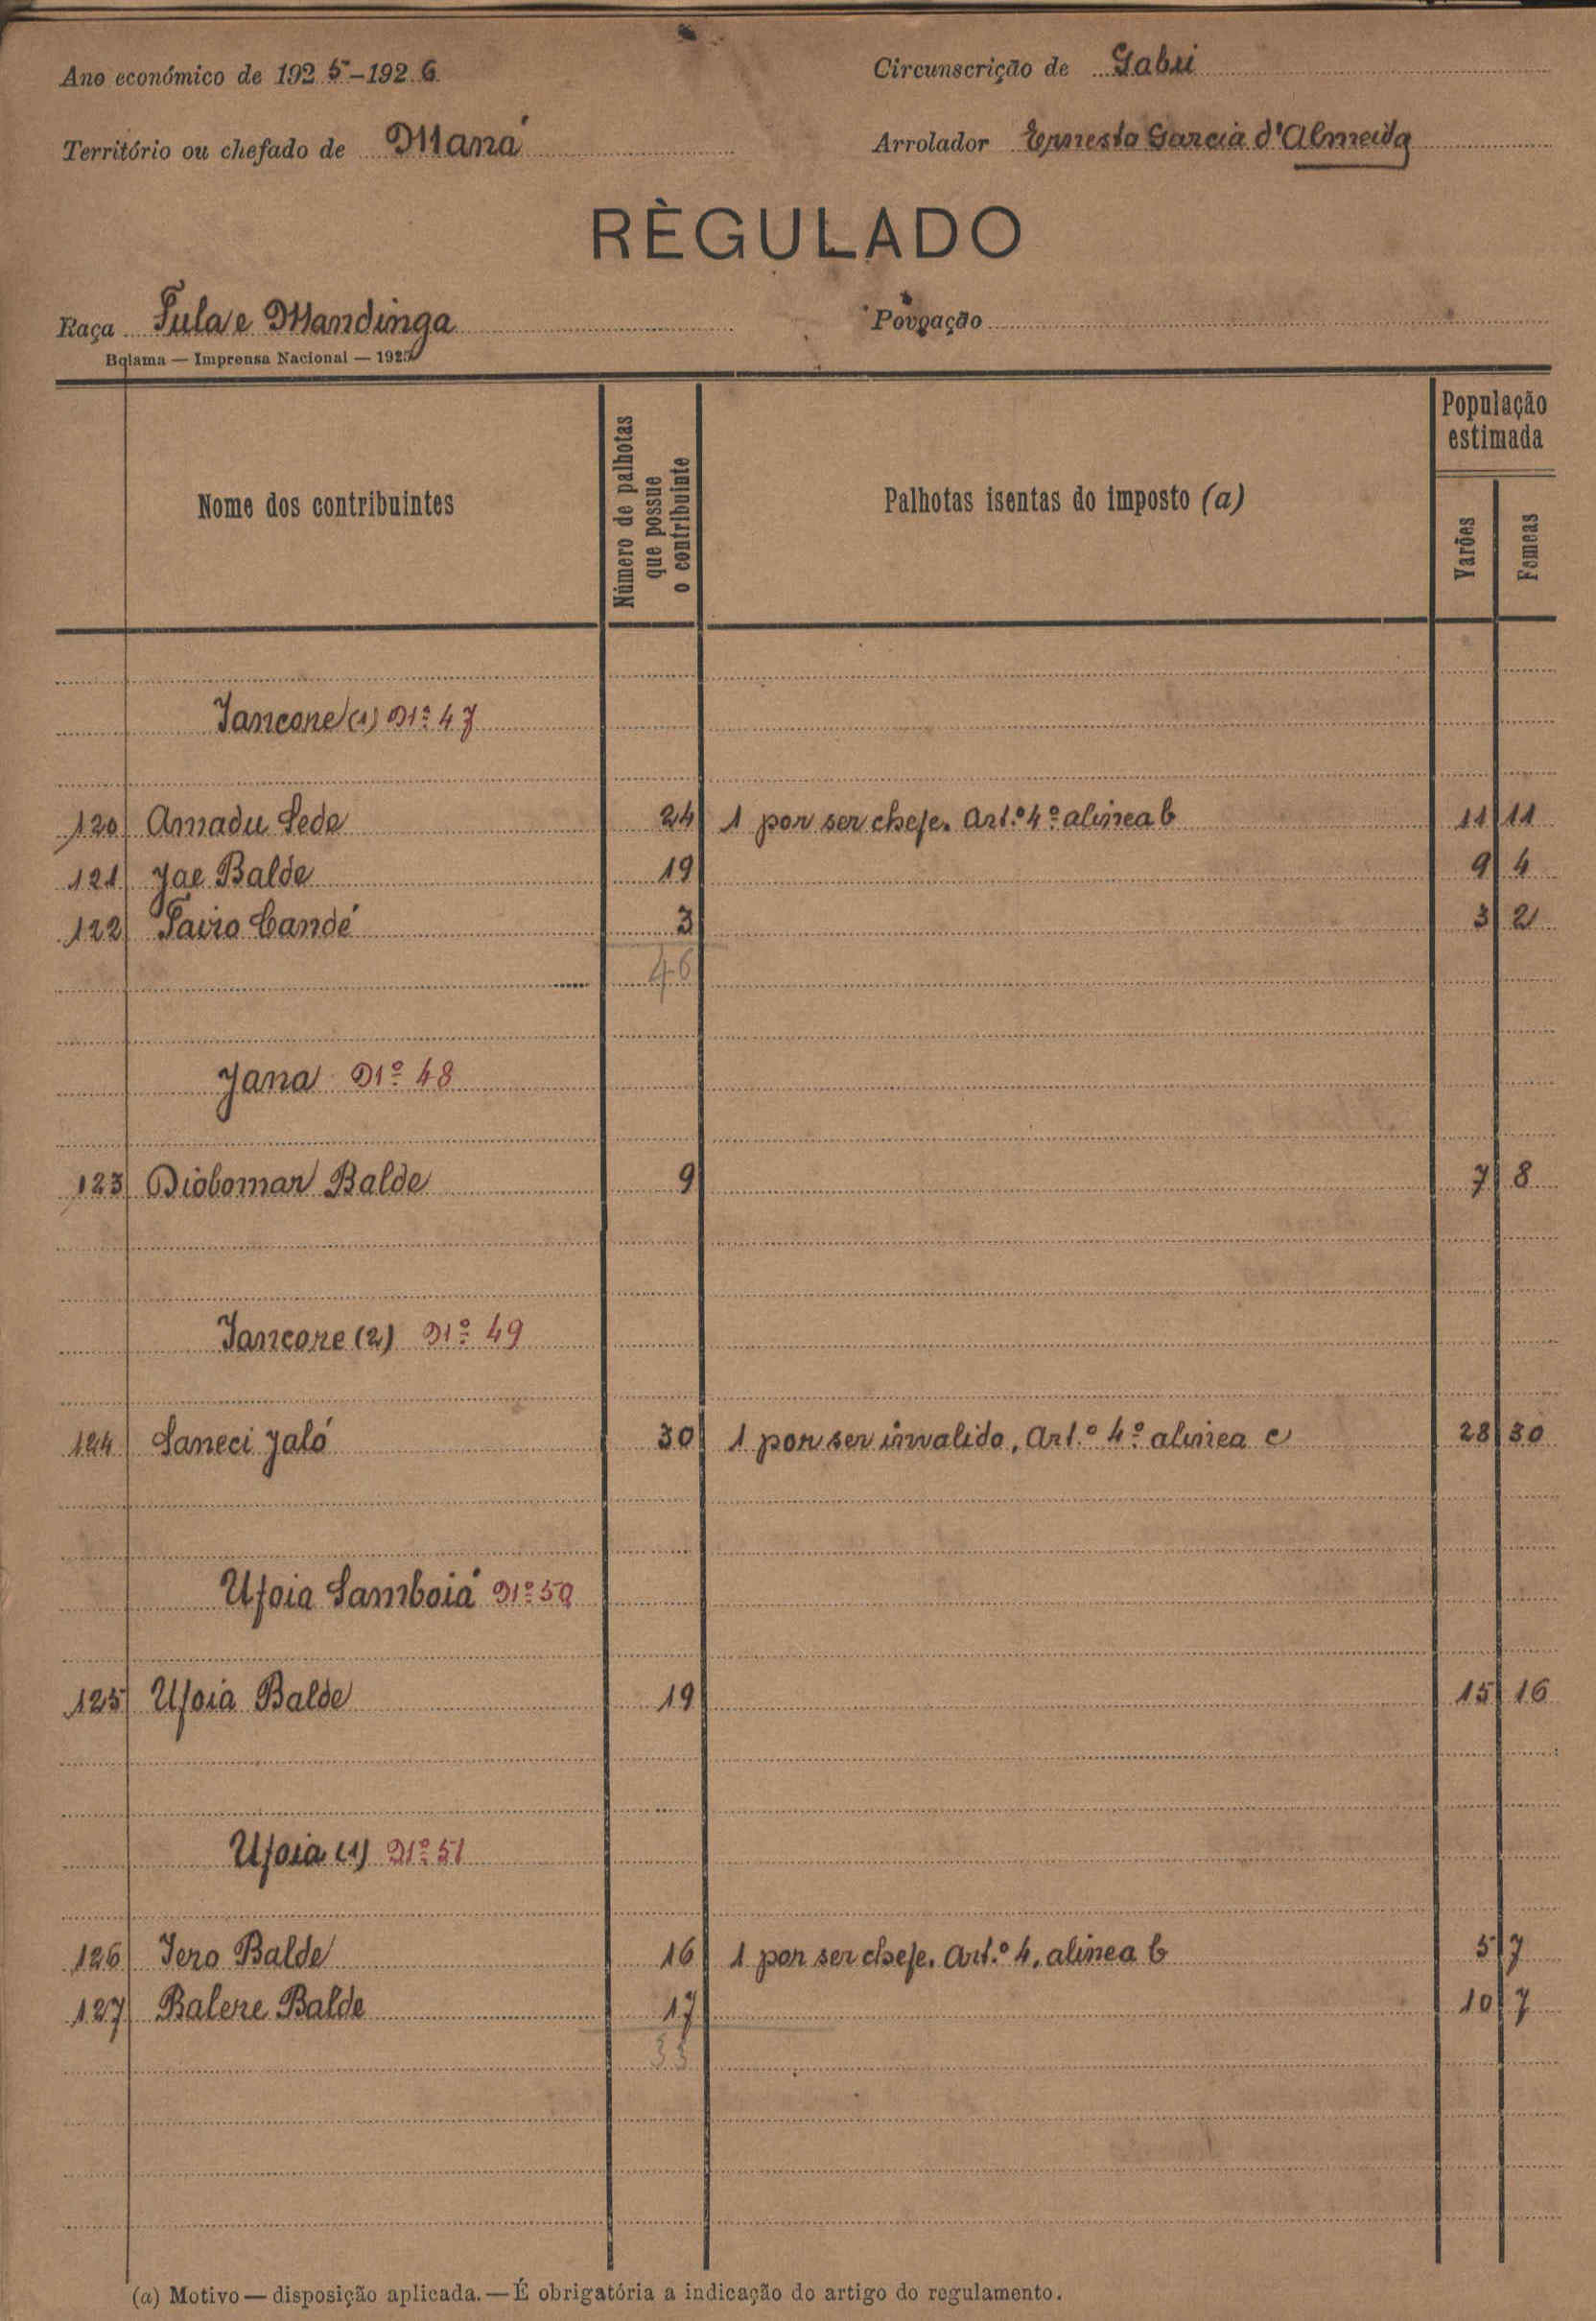 Ano económico de 1925-1926
Circunscrição de Gabú
Território ou chefado de Maná
Arrolador Ernesto Garcia d'Almeida
RÈGULADO
Raça Fula e Mandinga
Povoação
Bolama — Imprensa Nacional — 1925
Nome dos contribuintes
Número de palhotas que possue o contribuinte
Palhotas isentas do imposto (a)
População estimada
Varões
Femeas
Jancone (1) Nº 47
120 Amadu Sede 24 1 por ser chefe. Art.º 4º alinea b 11 11
121 Jae Balde 19 9 4
122 Candé 3 3 2
46
Jana Nº 48
123 Diobomar Balde 9 7 8
Jancone (2) Nº 49
124 Saneci Jaló 30 1 por ser invalido, Art.º 4º alinea c 28 30
Ufoia Samboiá Nº 50
125 Ufoia Balde 19 15 16
Ufoia (1) Nº 51
126 Jero Balde 16 1 por ser chefe. Art.º 4, alinea b 5 7
127 Balere Balde 17 10 7
33
(a) Motivo — disposição aplicada. — É obrigatória a indicação do artigo do regulamento.